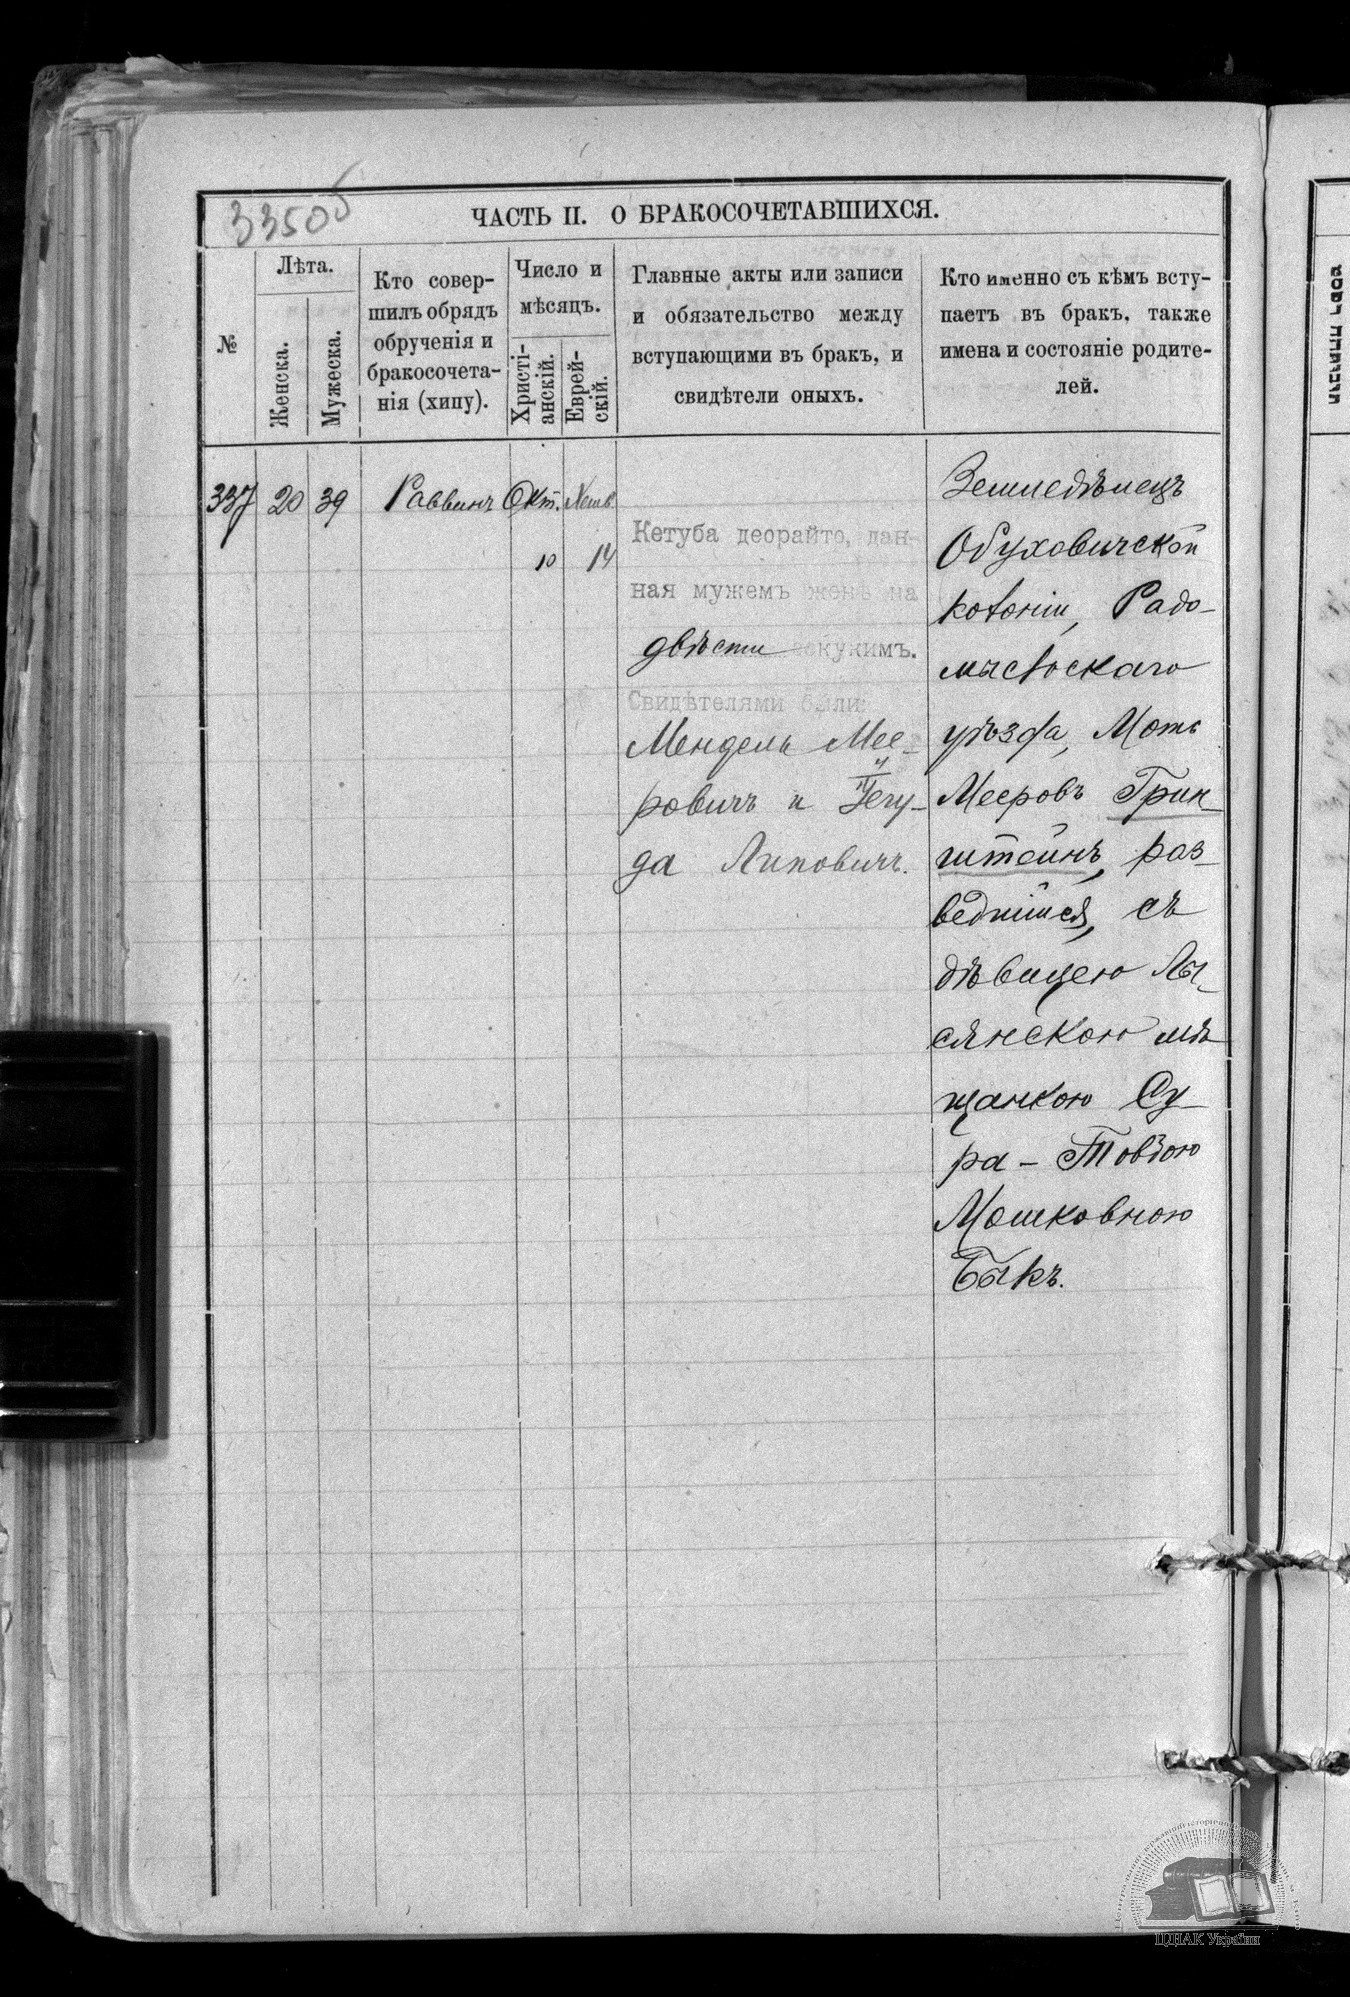 33505
ЧАСТЬ II. О БРАКОСОЧЕТАВШИХСЯ.
№
Лѣта.
Женска.
Мужеска.
Кто совер-
шилъ обрядъ
обрученія и
бракосочета-
нія (хипу).
Число и
мѣсяцъ.
Христі-
анскій.
Еврей-
скій.
Главные акты или записи
и обязательство между
вступающими въ бракъ, и
свидѣтели оныхъ.
Кто именно съ кѣмъ всту-
паетъ въ бракъ, также
имена и состояніе родите-
лей.
337 20 39 Раввинъ Окт. Хешв.
10 14
Кетуба деорайто, дан-
ная мужемъ женѣ на
двѣсти зекукимъ.
Свидѣтелями были:
Мендель Мее-
ровичъ и Іегу-
да Липовичъ.
Земледѣлецъ
Обуховичской
колоніи, Радо-
мысльскаго
уѣзда, Моть
Мееровъ Грин-
штейнъ, раз-
ведшійся, съ
дѣвицею Лы-
сянскою мѣ
щанкою Су-
ра-Товбою
Мошковною
Быкъ.
ЦДІАК України